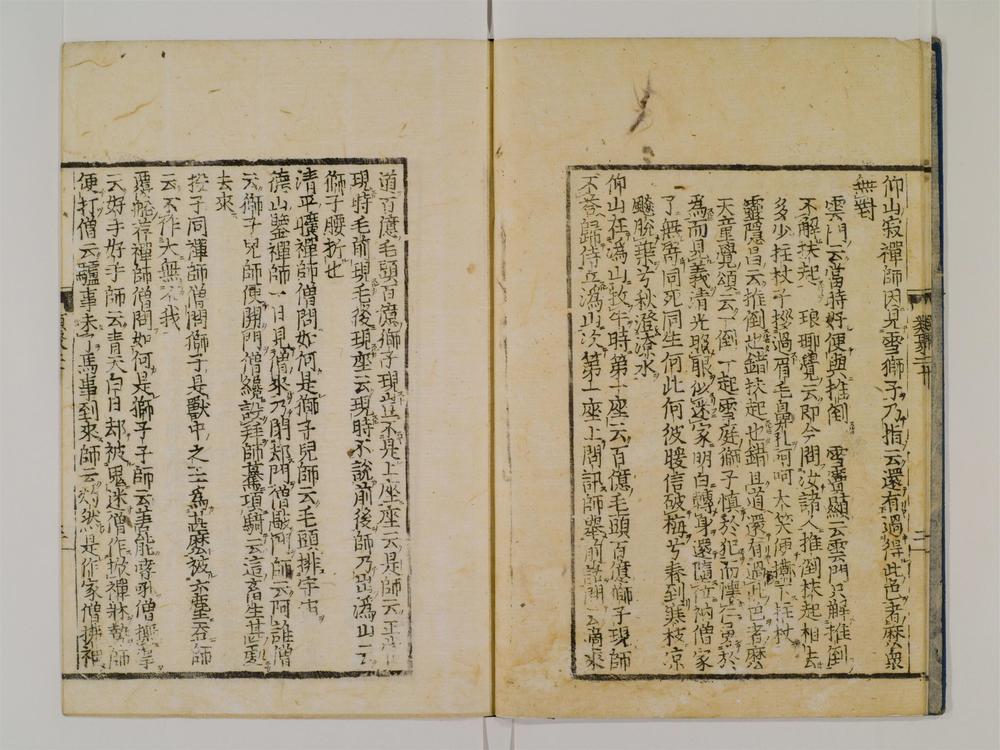 仰山寂禪師因見雪師子乃指云還有過得此色者麽衆
無對
雲門云當時好便與推倒　雪竇顯云雲門只解推倒
不解扶起　琅瑘覺云即今問汝諸人推倒扶起相去
多少拄杖子挃過眉毛鼻孔呵呵大笑便擲下拄杖
靈隱昌云推倒也錯扶起也錯且道還有過此色者麽
天童覺頌云一倒一起雪庭獅子慎於犯而懷仁勇於
為而見義清光照眼似迷家明白轉身還墮位衲僧家
了無寄同死同生何此何彼暖信破梅兮春到寒枝凉
飈脫葉兮秋澄潦水
仰山在溈山牧牛時第一座云百億毛頭百億獅子現師
不荅歸侍立溈山次第一座上問訊師舉前話問云適來
道百億毛頭百億獅子現豈不是上座座云是師云正當
現時毛前現毛後現座云現時不說前後師乃出溈山云
師子腰折也
清平曠禪師僧問如何是獅子兒師云毛頭排宇宙
德山鑒禪師一日見僧來乃閉却門僧敲門師云阿誰僧
云獅子兒師便開門僧纔設拜師驀項騎云這畜生甚處
去來
投子同禪師僧問獅子是獸中之王為甚麽被六塵吞師
云不作大無人我
覆船荐禪師僧問如何是獅子子師云善能哮吼僧撫掌
云好手好手師云青天白日却被鬼迷僧作掀禪牀勢師
便打僧云驢事未了馬事到來師云灼然是作家僧拂袖